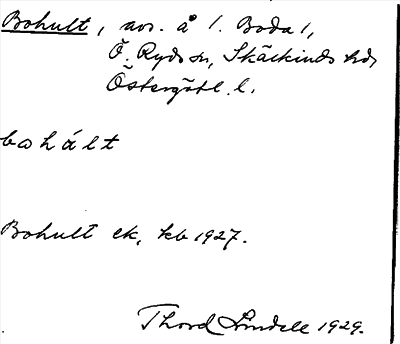 Bohult, avs. å 1. Boda 1,
Ö. Ryds sn, Skärkinds hd,
Östergötl. l.
bohált
Bohult ek, kb 1927.
Thord Lindell 1929.